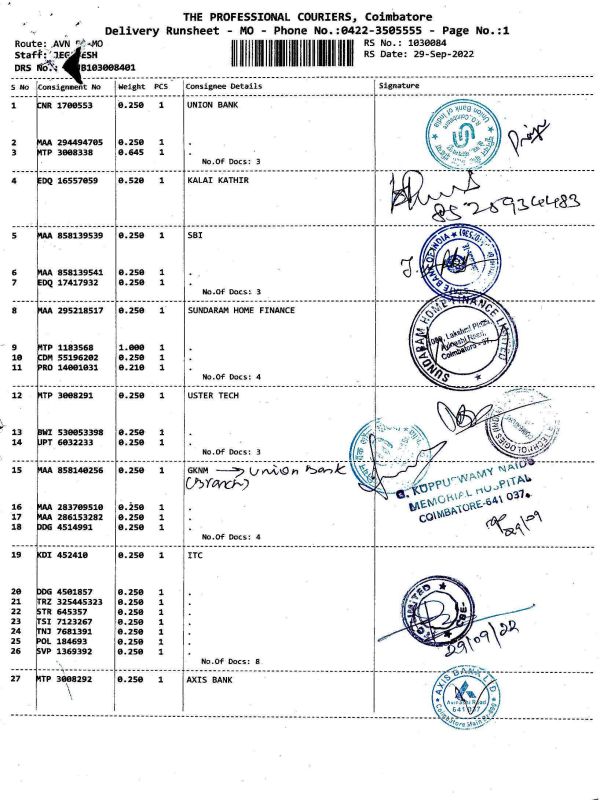 THE PROFESSIONAL COURIERS, Coimbatore
Delivery Runsheet - MO - Phone No.:0422-3505555 - Page No.:1
Route: AVN MO
RS No.: 1030084
Staff:
RS Date: 29-Sep-2022
DRS No.: B103008401
S No Consignment No Weight PCS Consignee Details Signature
1 CNR 1700553 0.250 1 UNION BANK
Union Bank of India
2 MAA 294494705 0.250 1 .
3 MTP 3008338 0.645 1 .
No.Of Docs: 3
4 EDQ 16557059 0.520 1 KALAI KATHIR
5 MAA 858139539 0.250 1 SBI
STATE BANK OF INDIA
6 MAA 858139541 0.250 1 .
7 EDQ 17417932 0.250 1 .
No.Of Docs: 3
8 MAA 295218517 0.250 1 SUNDARAM HOME FINANCE
SUNDARAM HOME FINANCE LIMITED
Lakshmi Plaza,
Avinashi Road,
Coimbatore - 37.
9 MTP 1183568 1.000 1 .
10 CDM 55196202 0.250 1 .
11 PRO 14001031 0.210 1 .
No.Of Docs: 4
12 MTP 3008291 0.250 1 USTER TECH
TECHNOLOGIES
13 BWI 530053398 0.250 1 .
14 UPT 6032233 0.250 1 .
No.Of Docs: 3
15 MAA 858140256 0.250 1 GKNM → Union Bank
(Branch)
G. KUPPUSWAMY NAIDU
MEMORIAL HOSPITAL
COIMBATORE-641 037.
29/09
16 MAA 283709510 0.250 1 .
17 MAA 286153282 0.250 1 .
18 DDG 4514991 0.250 1 .
No.Of Docs: 4
19 KDI 452410 0.250 1 ITC
20 DDG 4501857 0.250 1 .
21 TRZ 325445323 0.250 1 .
22 STR 645357 0.250 1 .
23 TSI 7123267 0.250 1 .
24 TNJ 7681391 0.250 1 .
25 POL 184693 0.250 1 .
26 SVP 1369392 0.250 1 .
LIMITED
29/09/22
No.Of Docs: 8
27 MTP 3008292 0.250 1 AXIS BANK
AXIS BANK LTD.
Avinashi Road
641 037